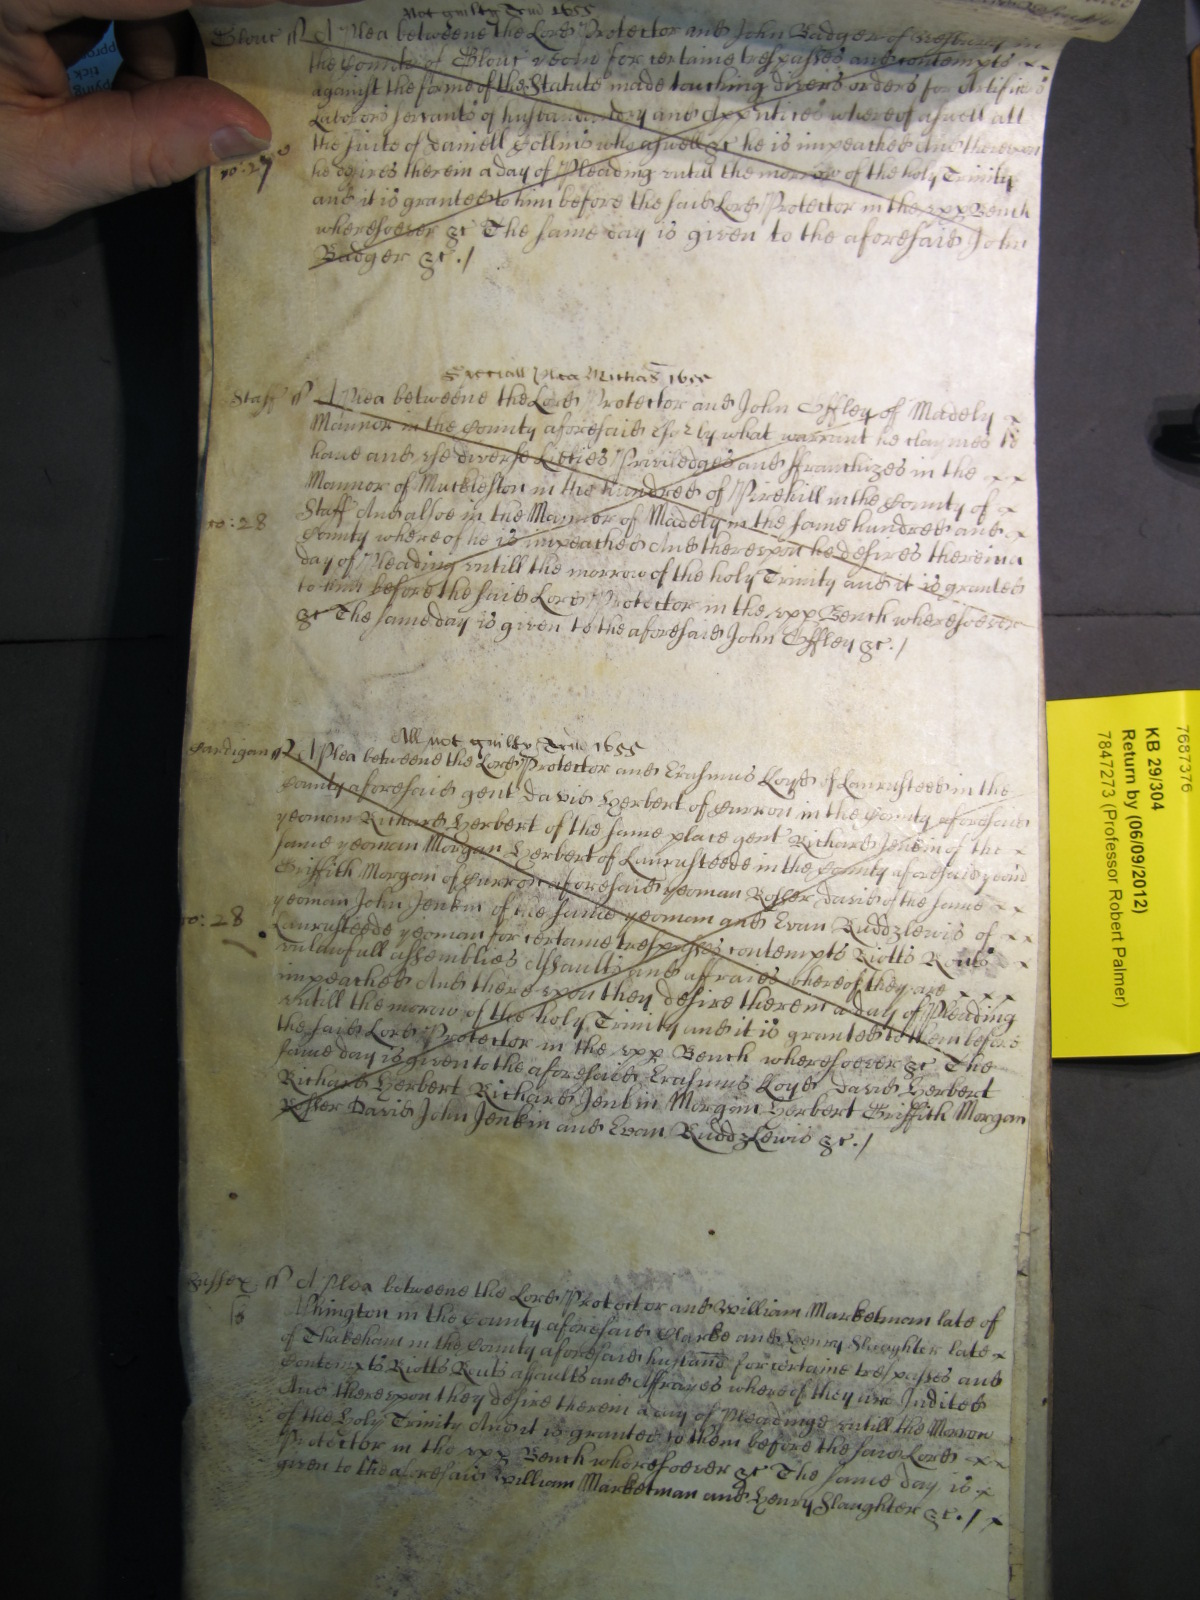 Not guilty Trin 1655
Glouc ss A Plea betweene the Lord Protector and John Badger of in
the County of Glouc yeom for certaine trespasses and contempts
against the forme of the Statute made touching divers orders for Artificers
Laborors servants of husbandry and Apprntices whereof aswell att
the suite of Daniell Collins who aswell &c he is impeached And therevpon
ro: 27
he desires therein a day of Pleading vntill the morrow of the holy Trinity
and it is granted to him before the said Lord Protector in the vpp Bench
wheresoever &c The same day is given to the aforesaid John
Badger &c ./
Speciall Plea Michas 1655
Staff ss A Plea betweene the Lord Protector and John Offley of Madely
Mannor in the County aforesaid Esq by what warrant he claymes to
haue and vse diverse Libties Priviledges and ffranchizes in the
Mannor of Muckleston in the hundred of Pirehill in the County of
ro: 28
Staff And alsoe in the Mannor of Madely in the same hundred and
County where of he is impeached And therevpon he desires therein a
day of Pleading vntill the morrow of the holy Trinity and it is granted
to him before the said Lord Protector in the vpp Bench wheresoever
&c The same day is given to the aforesaid John Offley &c ./
All not guilty Trin 1655
Cardigan ss A Plea betweene the Lord Protector and Erasmus Lloyd of Lanrusteed in the
County aforesaid gent David Herbert of Curron in the County aforesaid
yeoman Richard Herbert of the same place gent Richard Jenkin of the
same yeoman Morgan Herbert of Lanrusteede in the County aforesaid yeom
Griffith Morgan of Curron aforesaid yeoman Rosser David of the same
yeoman John Jenkin of the same yeoman and Evan Ruddzlewis of
ro: 28
Lanrusteede yeoman for certaine trespasses contempts Riotts Routs
vnlawfull assemblies Assaults and affraies whereof they are
impeached And there vpon they desire therein a day of Pleading
vntill the morow of the holy Trinity and it is granted to them before
the said Lord Protector in the vpp Bench wheresoever &c The
same day is given to the aforesaid Erasmus Lloyd David Herbert
Richard Herbert Richard Jenkin Morgan Herbert Griffith Morgan
Rosser David John Jenkin and Evan RuddzLewis &c ./
Sussex ss A Plea betweene the Lord Protector and William Marketman late of
Ashington in the County aforesaid Clarke and Henry Slaughter late
of Thakeham in the County aforesaid husband for certaine trespasses and
Contempts Riotts Routs assaults and Affrayes where of they are Indited
And therevpon they desire therein a day of Pleadinge vntill the Morrow
of the Holy Trinity And it is granted to them before the said Lord
Protector in the vpp Bench wheresoever &c The same day is
given to the aforesaid William Marketman and Henry Slaughter &c ./
7687376
KB 29/304
Return by (06/09/2012)
7847273 (Professor Robert Palmer)